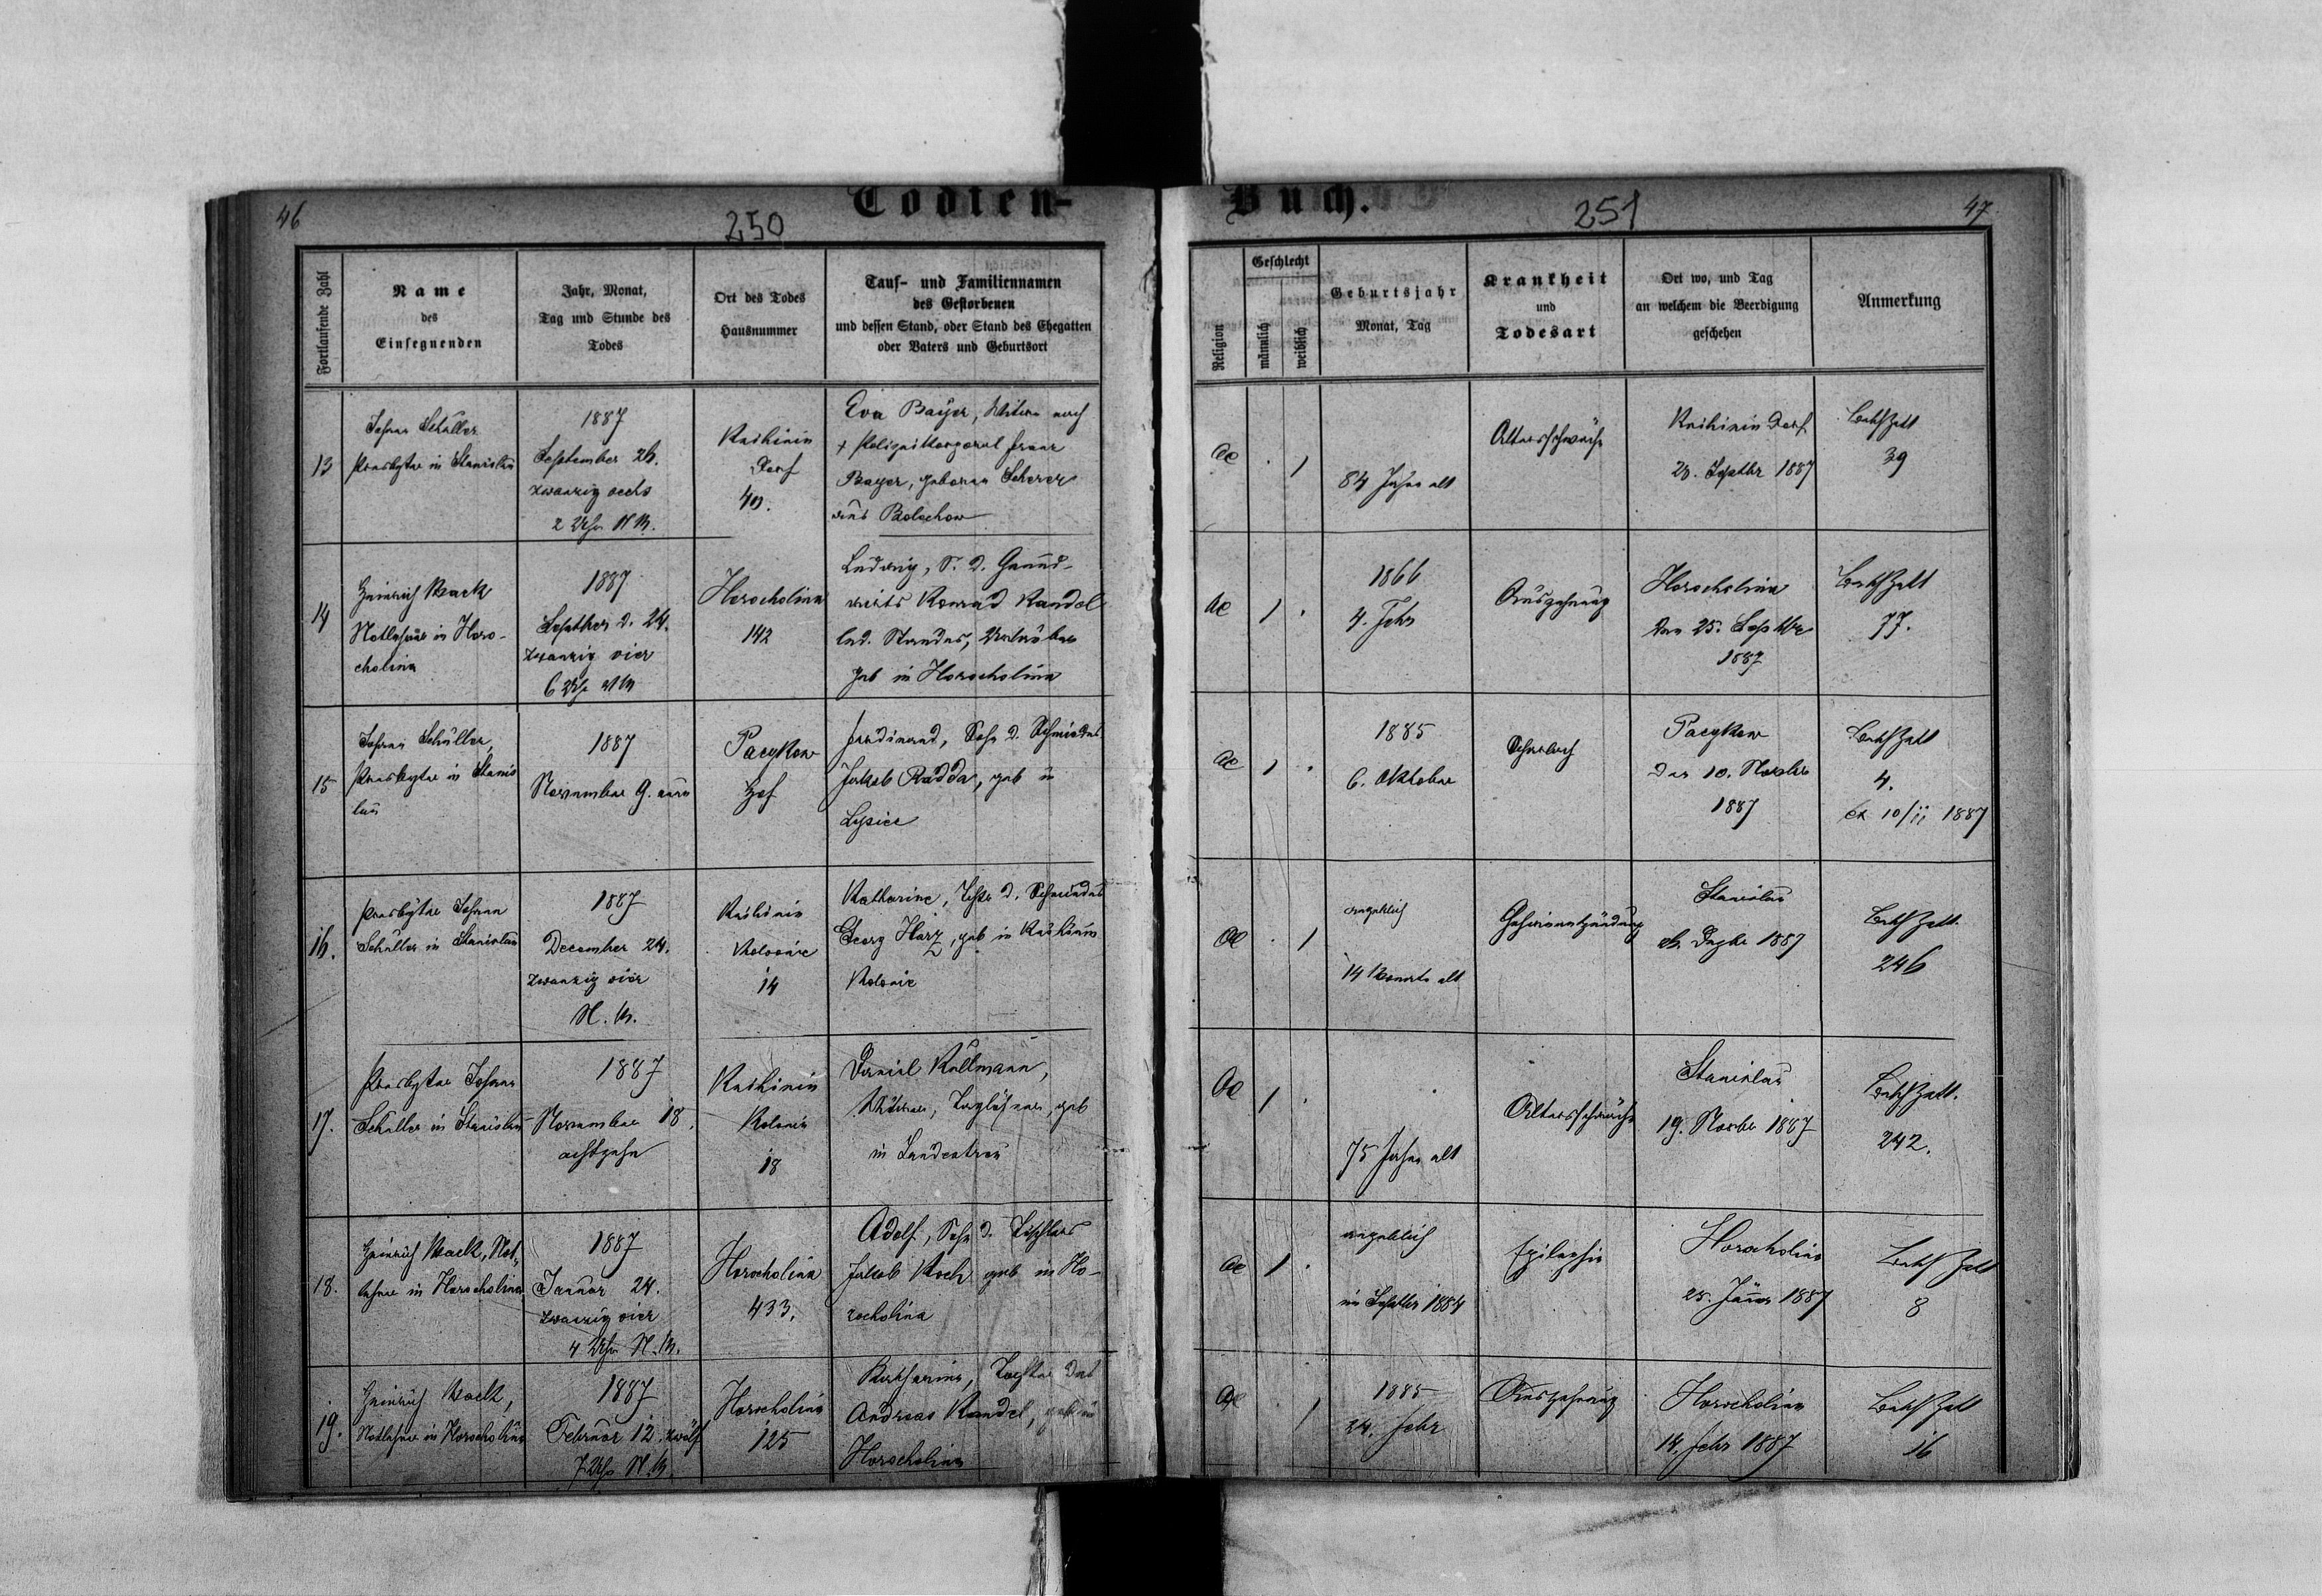 46
250
Todten-
Fortlaufende Zahl
Name
des
Einsegnenden
Jahr, Monat,
Tag und Stunde des
Todes
Ort des Todes
Hausnummer
Tauf- und Familiennamen
des Gestorbenen
und dessen Stand, oder Stand des Ehegatten
oder Vaters und Geburtsort
13
Johann Schüller
Presbyter in Stanislau
1887
September 26.
zwanzig sechs
2 Uhr N.M.
Knihinin
Dorf
Eva Bayer, Witwe nach
Bayer, geborene Scherer
aus Bolechow
14
Heinrich Mack
Notlehrer in Horo-
cholina
1887
Septber d. 24.
zwanzig vier
6 Uhr
Horocholina
142
Ludwig, S. d. Grund-
wirts Konrad Kandel
led. Standes,
geb in Horocholina
15
Johann Schüller,
Presbyter in Stanis
lau
1887
November 9. neun
Pacykow
Hof
Ferdinand, Sohn d. Schmiedes
Jakob Radda, geb in
Lysiec
16.
Presbyter Johann
Schüller in Stanislau
1887
December 24.
zwanzig vier
N.M.
Knihinin
Kolonie
14
Katharine, Tochter d. Schmiedes
Georg Harz, geb in Knihinin
Kolonie
17.
Presbyter Johann
Schüller in Stanislau
1887
November 18.
achtzehn
Knihinin
Kolonie
18
Daniel Kullmann,
Witwer, Taglöhner, geb
in Landestreu
18.
Heinrich Mack, Not-
lehrer in Horocholina
1887
Januar 24.
zwanzig vier
4 Uhr N.M.
Horocholina
433.
Adolf, Sohn d. Tischlers
Jakob Koch geb in Ho-
rocholina
19.
Heinrich Mack,
Notlehrer in Horocholina
1887
Februar 12. zwölf
7 Uhr N.M.
Horocholina
125
Katharine, Tochter des
Andreas Kandel, geb in
Horocholina
Buch.
251
47
Religion
Geschlecht
männlich
weiblich
Geburtsjahr
Monat, Tag
Krankheit
und
Todesart
Ort wo, und Tag
an welchem die Beerdigung
geschehen
Anmerkung
AC
. /
84 Jahre alt
Altersschwäche
Knihinin Dorf
28. Septbr 1887
39
AC
/ .
1866
4. Febr
Auszehrung
Horocholina
den 25. Septbr
1887
77.
AC
/ .
1885
6. Oktober
Pacykow
den 10. Novbr
1887
4.
ex 10/11 1887
AC
. /
angeblich
14 Monate alt
Gehirnentzündung
Stanislau
Dezbr 1887
246
AC
/ .
75 Jahre alt
Altersschwäche
Stanislau
19. Novbr 1887
242.
AC
/ .
angeblich
im Septber 1884
Epilepsie
Horocholina
25. Jänner 1887
8
AC
. /
1885
24. Febr
Auszehrung
Horocholina
14. Febr 1887
16